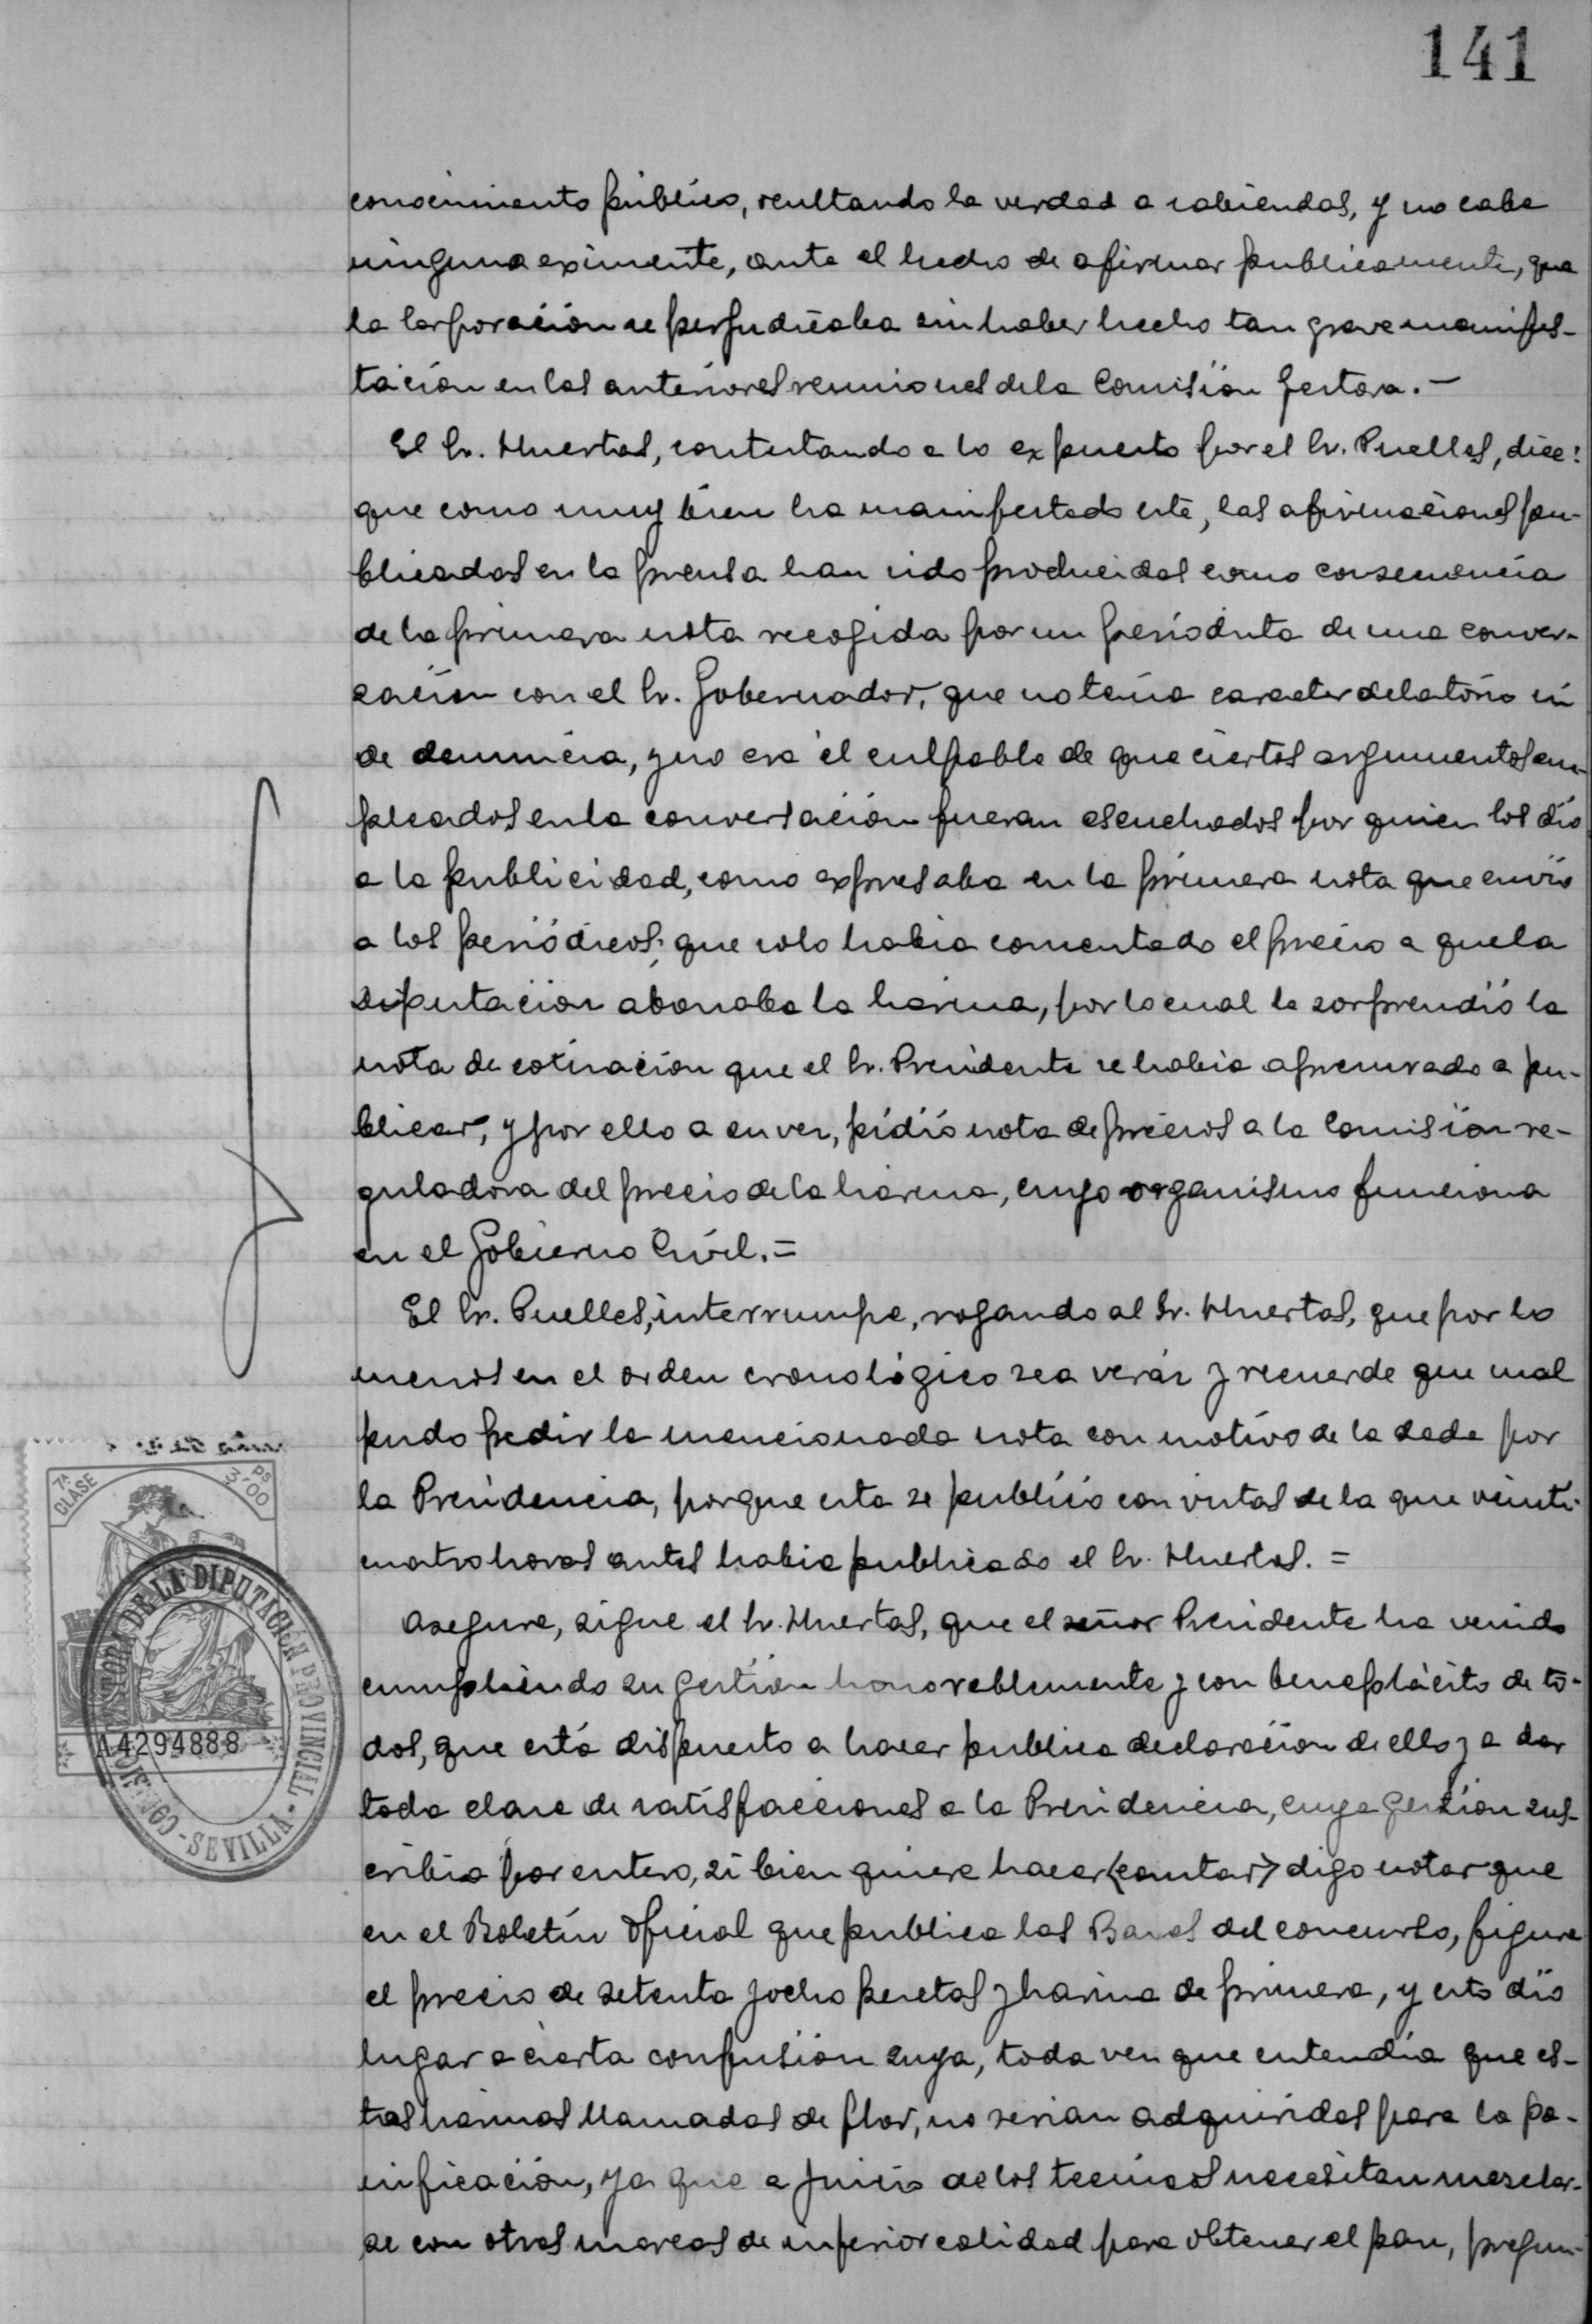 141
conocimiento público, ocultando la verdad a sabiendas, y no cabe
ninguna eximente, ante el hecho de afirmar publicamente, que
la Corporación se perjudicaba sin haber hecho tan grave manifes-
tación en las anteriores reuniones de la Comisión Gestora.-
El Sr. Huertas, contestando a lo expuesto por el Sr. Puelles, dice:
que como muy bien ha manifestado este, las afirmaciones pu-
blicadas en la prensa han sido producidas como consecuencia
de la primera nota recogida por un periodista de una conver-
sación con el Sr. Gobernador, que no tenía caracter delatorio ni
de denuncia, y no era él culpable de que ciertos argumentos em-
pleados en la conversación fueran escuchados por quien los dió
a la publicidad, como expresaba en la primera nota que envió
a los periódicos; que solo habia comentado el precio a que la
Diputación abonaba la harina, por lo cual le sorprendió la
nota de cotización que el Sr. Presidente se habia apresurado a pu-
blicar, y por ello a su vez, pidió nota de precios a la Comisión re-
guladora del precio de la harina, cuyo organismo funciona
en el Gobierno Civil.=
El Sr. Puelles, interrumpe, rogando al Sr. Huertas, que por lo
menos en el orden cronológico sea veráz y recuerde que mal
pudo pedir la mencionada nota con motivo de la dada por
la Presidencia, porque esta se publicó con vistas de la que veinti-
cuatro horas antes habia publicado el Sr. Huertas.=
Asegura, sigue el Sr. Huertas, que el señor Presidente ha venido
cumpliendo su gestión honorablemente y con beneplácito de to-
dos, que está dispuesto a hacer publica declaración de ello y a dar
toda clase de satisfacciones a la Presidencia, cuya gestión sus-
cribia por entero, si bien quiere hacer (contar) digo notar que
en el Boletín Oficial que publica las Bases del concurso, figura
el precio de setenta y ocho pesetas y harina de primera, y esto dió
lugar a cierta confusión suya, toda vez que entendía que es-
tas harinas llamadas de flor, no serian adquiridas para la pa-
nificación, ya que a juicio de los tecnicos necesitan mezclar-
se con otras marcas de inferior calidad para obtener el pan, pregun-
7ª CLASE
3'00 PS
A4294888
COMISIÓN GESTORA DE LA DIPUTACIÓN PROVINCIAL - SEVILLA -